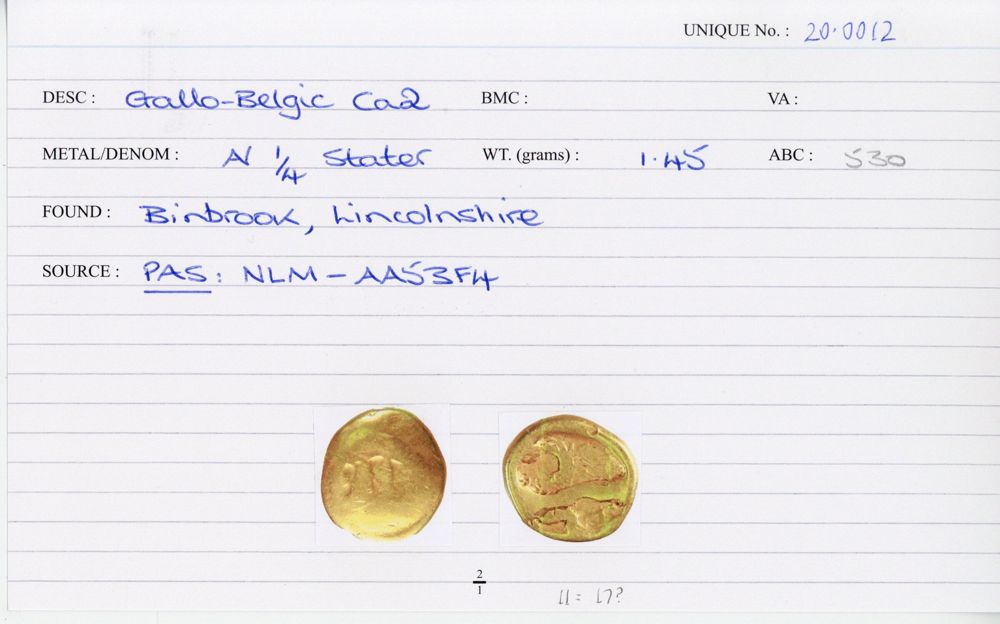 UNIQUE No. : 20·0012
DESC : Gallo-Belgic Ca2 BMC : VA :
METAL/DENOM : AV 1/4 Stater WT. (grams) : 1·45 ABC : 530
FOUND : Binbrook, Lincolnshire
SOURCE : PAS: NLM - AA53F4
2/1
11 = 17?